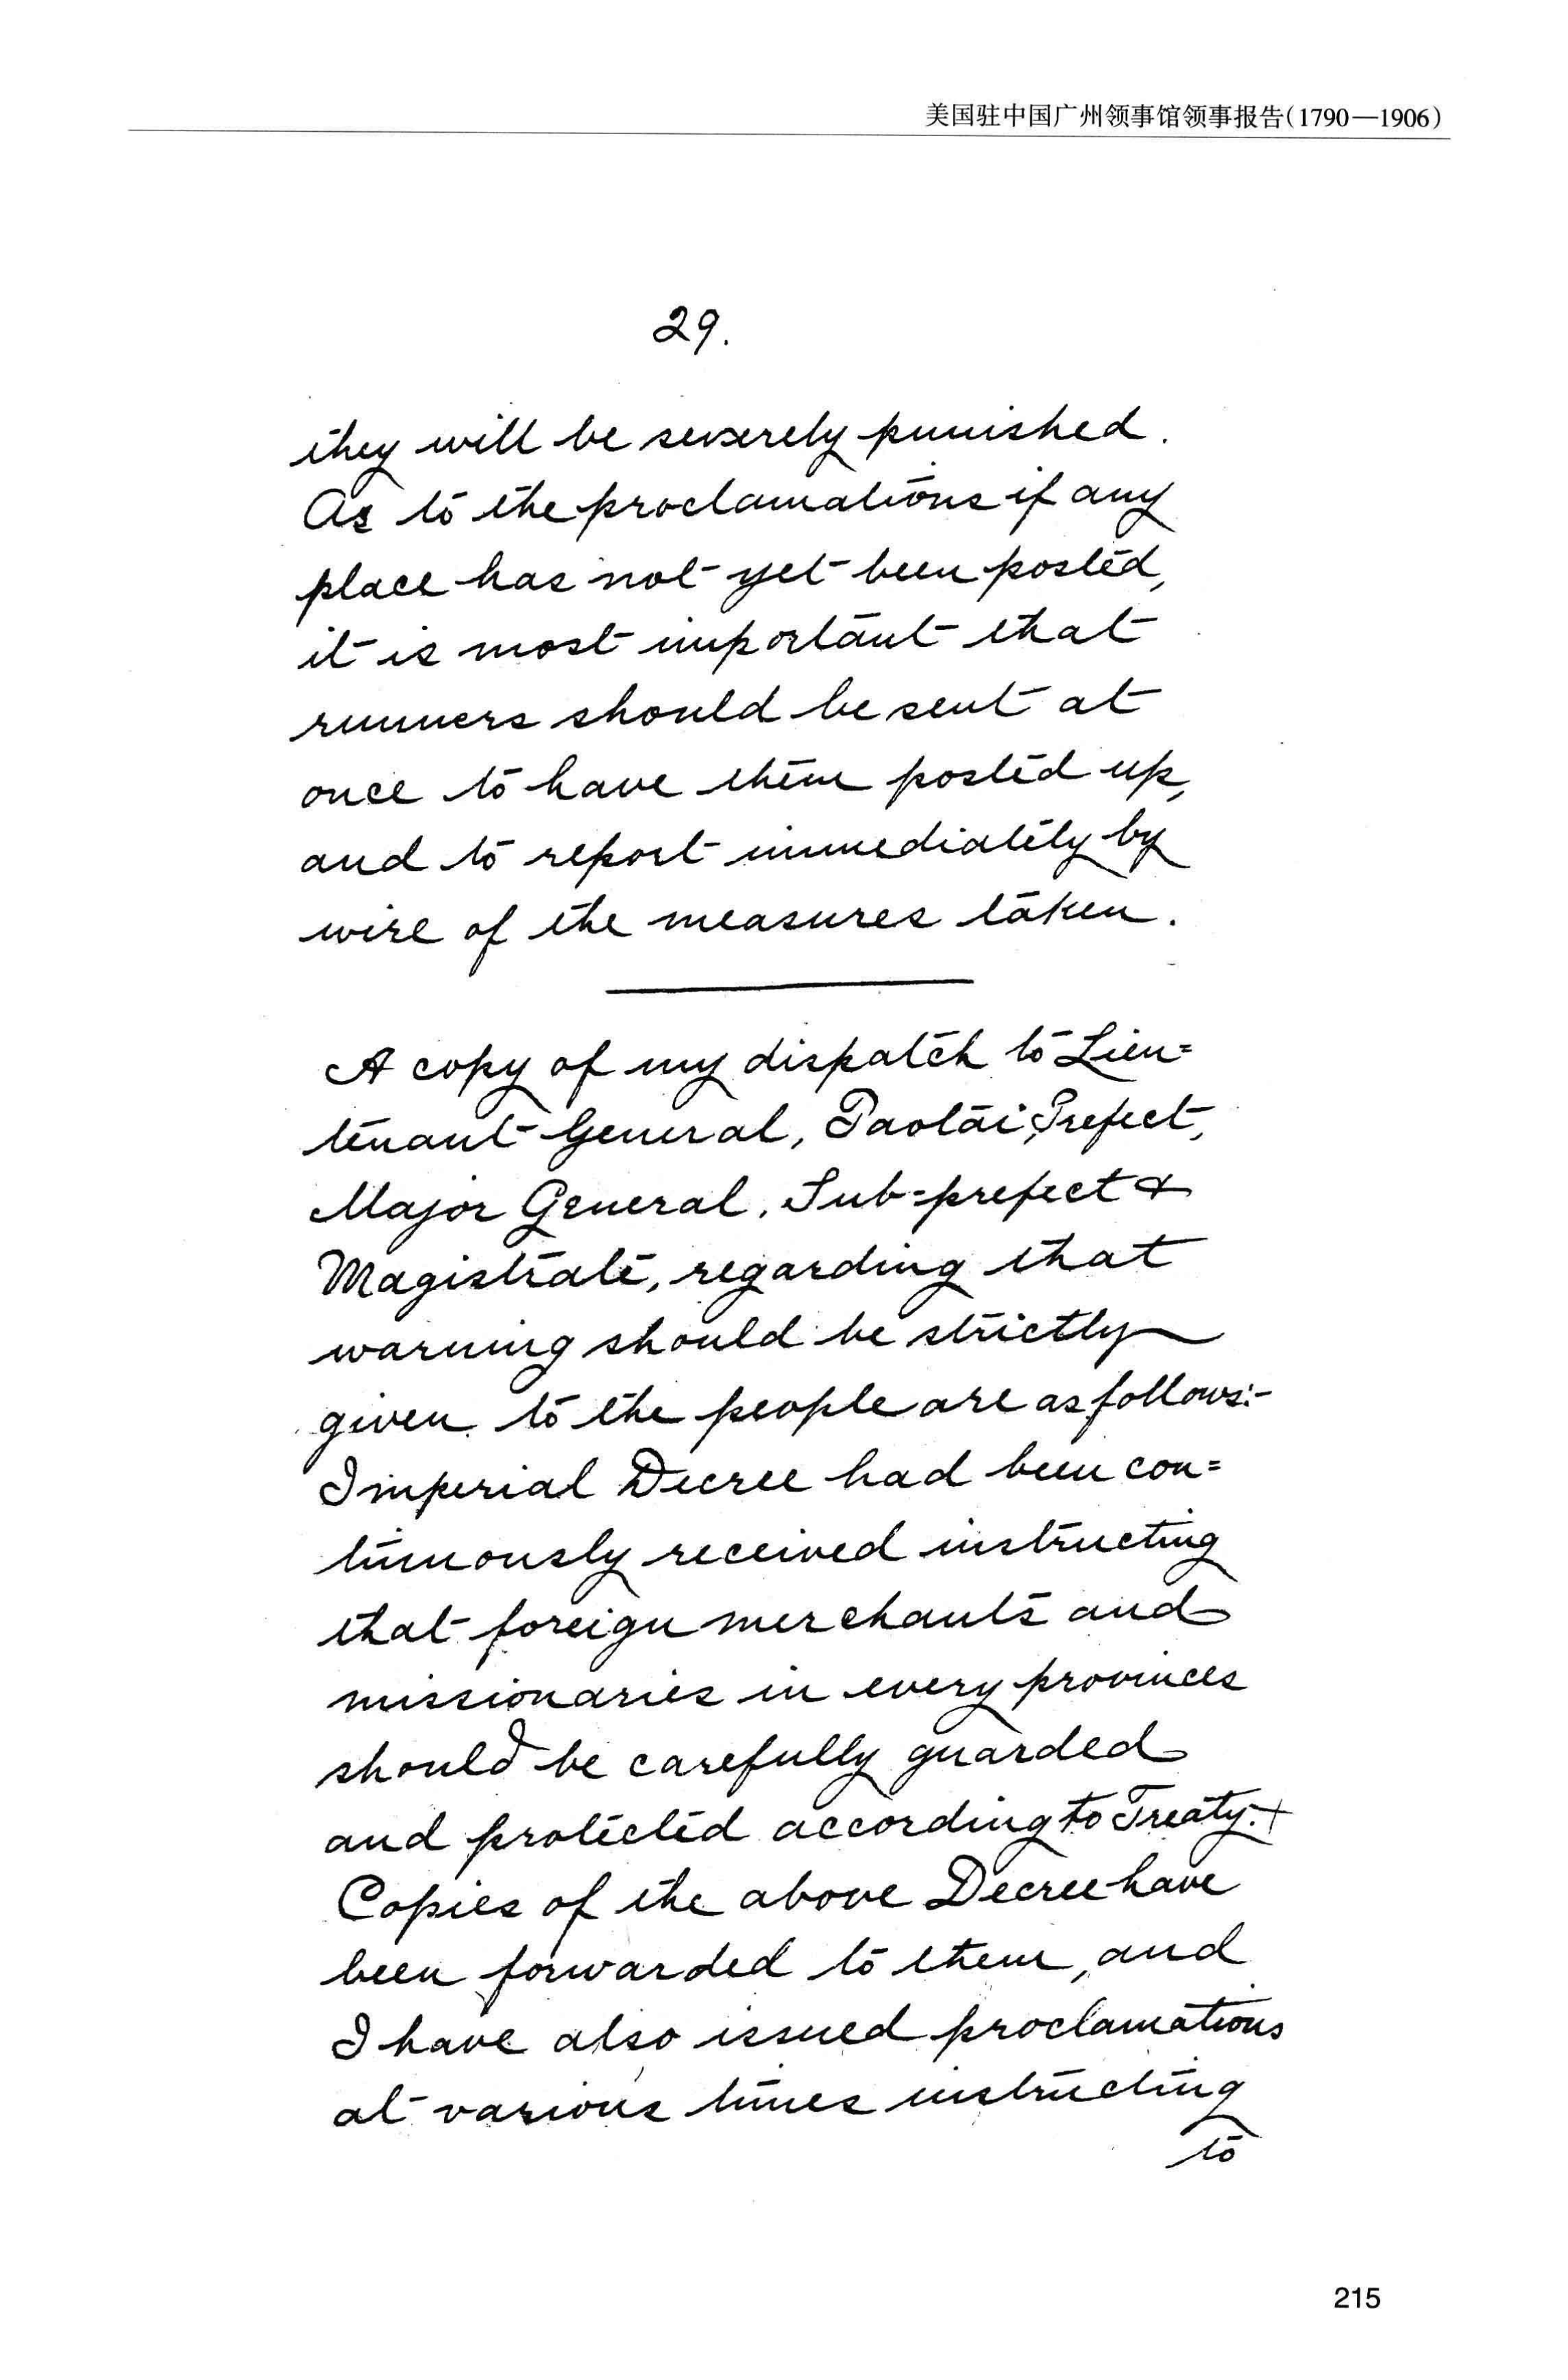 美国驻中国广州领事馆领事报告(1790—1906)
29.
they will be severely punished.
As to the proclamations if any
place has not yet been posted,
it is most important that
runners should be sent at
once to have them posted up,
and to report immediately by
wire of the measures taken.
A copy of my dispatch to Lieu=
tenant General, Taotai, Prefect,
Major General, Sub=prefect &
Magistrate, regarding that
warning should be strictly
given to the people are as follows:-
Imperial Decree had been con=
tinuously received instructing
that foreign merchants and
missionaries in every provinces
should be carefully guarded
and protected according to Treaty. +
Copies of the above Decree have
been forwarded to them, and
I have also issued proclamations
at various times instructing
to
215